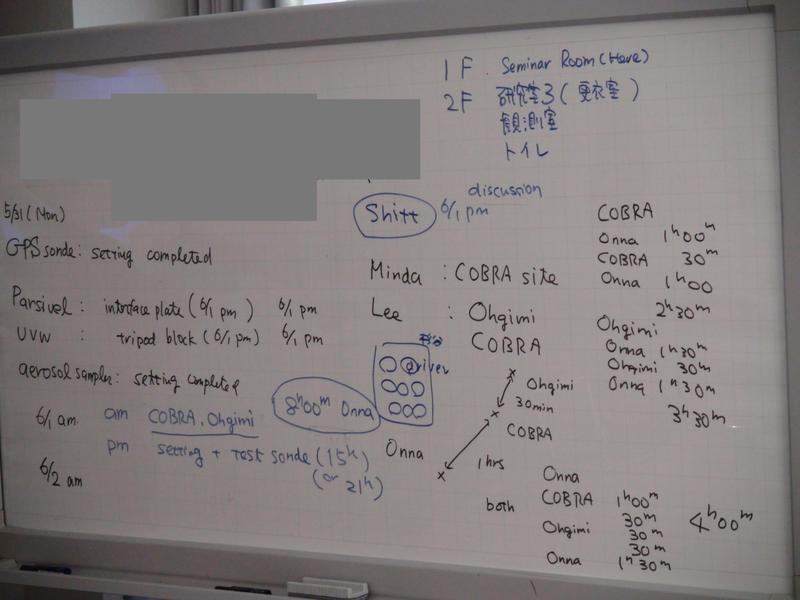 1F Seminar Room (Here)
2F 研究室3 (更衣室)
観測室
トイレ
5/31 (Mon)
GPS sonde: setting completed
Parsivel: interface plate (6/1 pm) 6/1 pm
UVW : tripod block (6/1 pm) 6/1 pm
aerosol sampler: setting completed
6/1 am am COBRA, Ohgimi
8h00m Onna
pm setting + test sonde (15h)
(or 21h)
6/2 am
Shift 6/1 pm
discussion
Minda : COBRA site
Lee : Ohgimi
COBRA
driver
Ohgimi
30min
COBRA
Onna
1hrs
COBRA
Onna 1h00m
COBRA 30m
Onna 1h00
2h30m
Ohgimi
Onna 1h30m
Ohgimi 30m
Onna 1h30m
3h30m
both
Onna
COBRA 1h00m
30m
Ohgimi 30m
30m
Onna 1h30m
4h00m